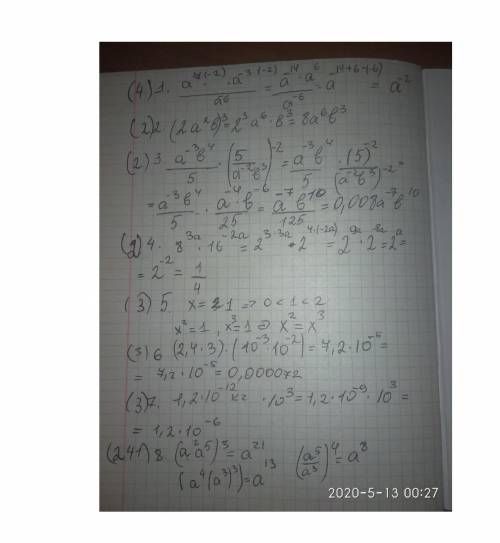 (4) 1. a^7·(-2) · a^-3·(-2) / a^6 = a^-14 · a^6 / a^-6 = a^-14+6-(-6) = a^-2
(2) 2. (2a²b)³ = 2³a⁶·b³ = 8a⁶b³
(2) 3. a^-3 b^4 / 5 · (5 / a^-2 b^3)^-2 = a^-3 b^4 / 5 · (5)^-2 / (a^-2 b^3)^-2 =
= a^-3 b^4 / 5 · a^-4 · b^-6 / 25 = a^-7 b^10 / 125 = 0,008a^-7 b^10
(2) 4. 8^3a · 16^-2a = 2^3·3a · 2^4·(-2a) = 2^9a · 2^-8a = 2^a =
= 2^-2 = 1/4
(3) 5. x = 1 => 0 < 1 < 2
x² = 1 , x³ = 1 => x² = x³
(3) 6. (2,4 · 3) · (10^-3 · 10^-2) = 7,2 · 10^-5 =
= 7,2 · 10^-5 = 0,000072
(3) 7. 1,2 · 10^-12 кг · 10³ = 1,2 · 10^-9 · 10³ =
= 1,2 · 10^-6
(241) 8. (a²a⁵)³ = a^21 (a⁵/a³)⁴ = a⁸
(a⁴(a³)³) = a^13
2020-5-13 00:27